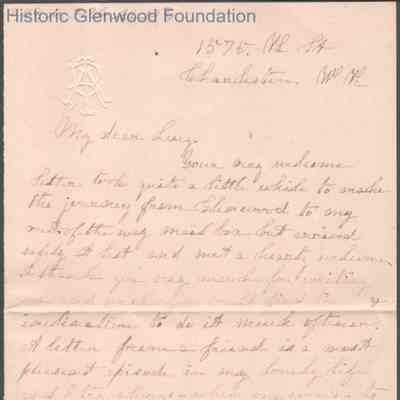 Historic Glenwood Foundation
1575. St
Charleston, W. Va
My dear Lucy.
Your very welcome
letter took quite a little while to make
the journey from Glenwood to my
out of the way mail box but arrived
safely at last and met a hearty welcome
I thank you very much for writing
inclination to do it much oftener.
A letter from a friend is a most
pleasant episode in my lonely life